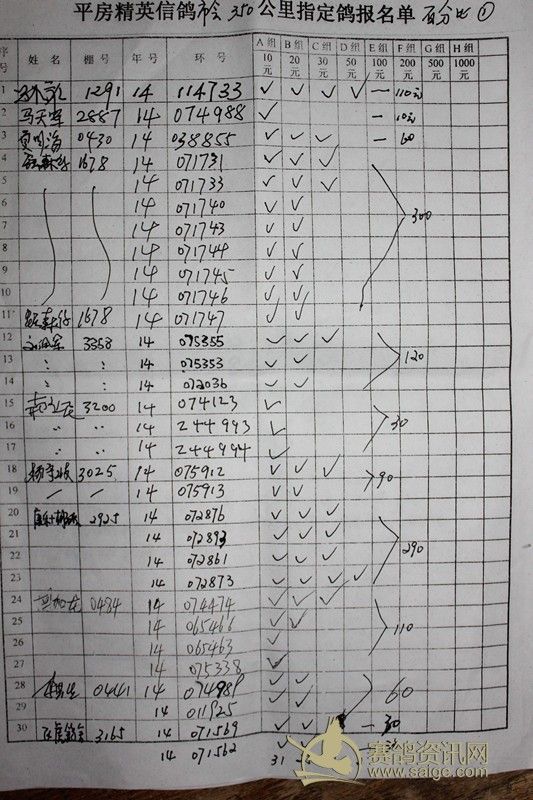 平房精英信鸽 350公里指定鸽报名单 百分比 ①
序号 姓名 棚号 年号 环号 A组 10元 B组 20元 C组 30元 D组 50元 E组 100元 F组 200元 G组 500元 H组 1000元
1 1291 14 114733 ✓ ✓ ✓ ✓ — 110元
2 马天军 2887 14 074988 ✓ — 10元
3 0430 14 038855 ✓ ✓ ✓ — 60
4 1678 14 071731 ✓ ✓ ✓
5 14 071733 ✓ ✓ ✓
6 14 071740 ✓ ✓ 300
7 14 071743 ✓ ✓
8 14 071744 ✓ ✓
9 14 071745 ✓ ✓
10 14 071746 ✓ ✓
11 1678 14 071747 ✓ ✓
12 3358 14 075355 ✓ ✓ ✓
13 : : 14 075353 ✓ ✓ 120
14 : : 14 072036 ✓ ✓
15 3200 14 074123 ✓
16 " " 14 244993 ✓ 30
17 " " 14 244994 ✓
18 3025 14 075912 ✓ ✓ ✓ 90
19 14 075913 ✓ ✓
20 2925 14 072876 ✓ ✓ ✓
21 14 072893 ✓ ✓ ✓ 290
22 14 072861 ✓ ✓ ✓
23 14 072873 ✓ ✓ ✓ ✓
24 0484 14 074474 ✓ ✓ ✓
25 14 065466 ✓ ✓ 110
26 14 065463 ✓
27 14 075338 ✓
28 0441 14 074989 ✓ ✓ 60
29 14 011925 ✓ ✓
30 3165 14 071569 ✓ ✓ — 30
14 071562 31
赛鸽资讯网
www.saige.com